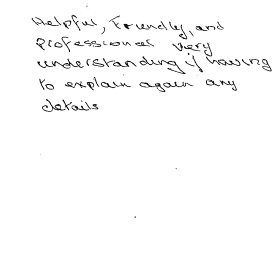 Helpful, Friendly, and
Professional very
understanding if having
to explain again any
details